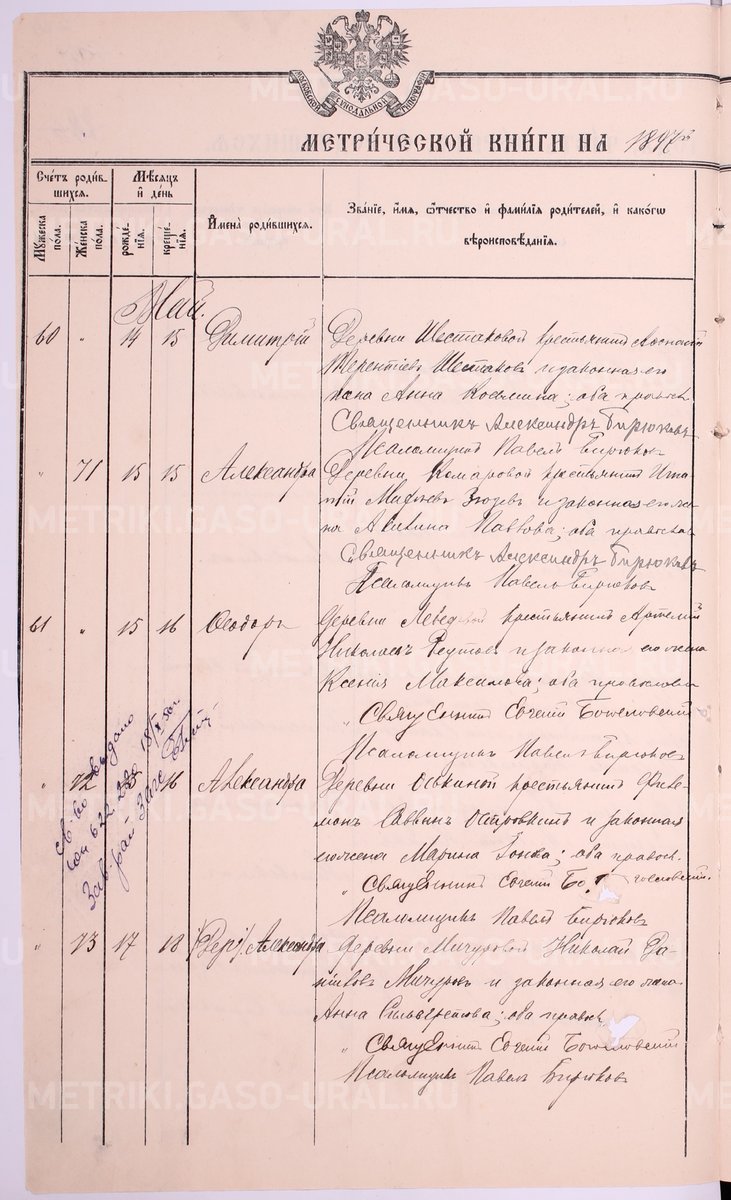 МОСКОВСКОЙ СѴНОДАЛЬНОЙ ТИПОГРАФІИ
МЕТРИ́ЧЕСКОЙ КНИ́ГИ НА 1897й
Сче́тъ роди́вшихся.
Мѣ́сяцъ и де́нь
Мꙋ́жеска по́ла.
Же́нска по́ла.
рожде́нїя.
креще́нїя.
И҆мена̀ роди́вшихся.
Зва́нїе, и҆́мя, ѻ҆́тчество и҆ фами́лїя роди́телей, и҆ како́гѡ
вѣроисповѣ́данїя.
Май.
60 " 14 15 Димитрій Деревни Шестаковой крестьянинъ
Терентіевъ Шестаковъ и законная его
жена Анна Козьмина; оба правосл.
Священникъ Александръ Бирюковъ
Псаломщикъ Павелъ Бирюковъ
" 71 15 15 Александра Деревни Комаровой крестьянинъ
и законная его же
на Павлова; оба правосл.
Священникъ Александръ Бирюковъ
Псаломщикъ Павелъ Бирюковъ
61 " 15 16 Ѳеодоръ Деревни крестьянинъ Артемій
Николаевъ Реутовъ и законная его жена
Ксенія Максимова; оба православн
" Священникъ Евгеній Богословскій
Псаломщикъ Павелъ Бирюковъ
" 72 15 16 Александра Деревни Оскиной крестьянинъ Филимонъ Саввинъ и законная
его жена Марина; оба правосл.
" Священникъ Евгеній Богословскій.
Псаломщикъ Павелъ Бирюковъ
" 73 17 18 Александра Деревни Мичуровой Николай Даниловъ Мичуровъ и законная его жена
Анна; оба правосл
" Священникъ Евгеній Богословскій
Псаломщикъ Павелъ Бирюковъ
св-во выдано
Зав. рай Загс
METRIKI.GASO-URAL.RU